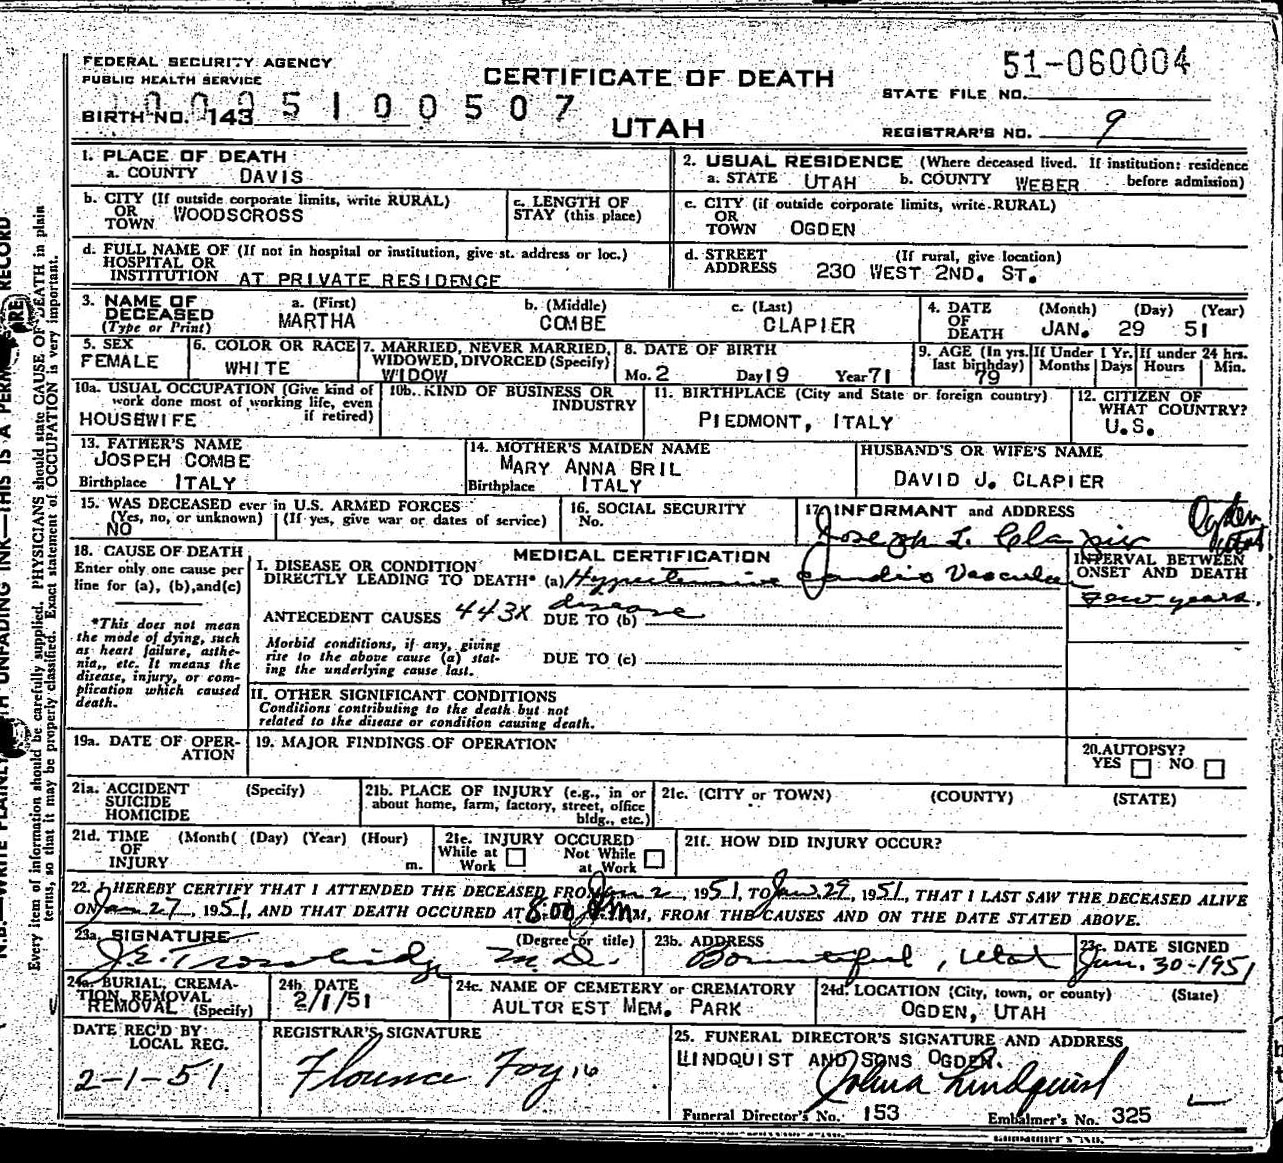 FEDERAL SECURITY AGENCY
PUBLIC HEALTH SERVICE
CERTIFICATE OF DEATH
51-060004
STATE FILE NO.
BIRTH NO. 143
0 0 0 5 1 0 0 5 0 7
UTAH
REGISTRAR'S NO. 9
1. PLACE OF DEATH
a. COUNTY DAVIS
2. USUAL RESIDENCE (Where deceased lived. If institution: residence before admission)
a. STATE UTAH b. COUNTY WEBER
b. CITY (If outside corporate limits, write RURAL)
OR
TOWN WOODSCROSS
c. LENGTH OF
STAY (this place)
c. CITY (if outside corporate limits, write RURAL)
OR
TOWN OGDEN
d. FULL NAME OF (If not in hospital or institution, give st. address or loc.)
HOSPITAL OR
INSTITUTION AT PRIVATE RESIDENCE
d. STREET (If rural, give location)
ADDRESS 230 WEST 2ND. ST.
3. NAME OF DECEASED
(Type or Print)
a. (First) MARTHA
b. (Middle) COMBE
c. (Last) CLAPIER
4. DATE OF DEATH
(Month) (Day) (Year)
JAN. 29 51
5. SEX
FEMALE
6. COLOR OR RACE
WHITE
7. MARRIED, NEVER MARRIED,
WIDOWED, DIVORCED (Specify)
WIDOW
8. DATE OF BIRTH
Mo. 2 Day 19 Year 71
9. AGE (In yrs. last birthday)
79
If Under 1 Yr.
Months Days
If under 24 hrs.
Hours Min.
10a. USUAL OCCUPATION (Give kind of work done most of working life, even if retired)
HOUSEWIFE
10b. KIND OF BUSINESS OR INDUSTRY
11. BIRTHPLACE (City and State or foreign country)
PIEDMONT, ITALY
12. CITIZEN OF WHAT COUNTRY?
U.S.
13. FATHER'S NAME
JOSPEH COMBE
Birthplace ITALY
14. MOTHER'S MAIDEN NAME
MARY ANNA BRIL
Birthplace ITALY
HUSBAND'S OR WIFE'S NAME
DAVID J. CLAPIER
15. WAS DECEASED ever in U.S. ARMED FORCES
(Yes, no, or unknown) (If yes, give war or dates of service)
NO
16. SOCIAL SECURITY
No.
17. INFORMANT and ADDRESS
Joseph L. Clapier Ogden Utah
18. CAUSE OF DEATH
Enter only one cause per
line for (a), (b), and (c)
*This does not mean
the mode of dying, such
as heart failure, asthe-
nia,, etc. It means the
disease, injury, or com-
plication which caused
death.
MEDICAL CERTIFICATION
I. DISEASE OR CONDITION
DIRECTLY LEADING TO DEATH* (a) Hypertensive Cardio Vascular
disease
ANTECEDENT CAUSES 443X DUE TO (b)
Morbid conditions, if any, giving
rise to the above cause (a) stat-
ing the underlying cause last.
DUE TO (c)
INTERVAL BETWEEN
ONSET AND DEATH
Few years.
II. OTHER SIGNIFICANT CONDITIONS
Conditions contributing to the death but not
related to the disease or condition causing death.
19a. DATE OF OPER-
ATION
19. MAJOR FINDINGS OF OPERATION
20. AUTOPSY?
YES NO
21a. ACCIDENT (Specify)
SUICIDE
HOMICIDE
21b. PLACE OF INJURY (e.g., in or
about home, farm, factory, street, office
bldg., etc.)
21c. (CITY or TOWN) (COUNTY) (STATE)
21d. TIME (Month( (Day) (Year) (Hour)
OF
INJURY m.
21e. INJURY OCCURED
While at Work Not While at Work
21f. HOW DID INJURY OCCUR?
22. I HEREBY CERTIFY THAT I ATTENDED THE DECEASED FROM Jan 2, 1951, TO Jan. 29, 1951, THAT I LAST SAW THE DECEASED ALIVE
ON Jan 27, 1951, AND THAT DEATH OCCURED AT 8:00 P.M M, FROM THE CAUSES AND ON THE DATE STATED ABOVE.
23a. SIGNATURE (Degree or title)
J.E. Trowbridge M.D.
23b. ADDRESS
Bountiful, Utah
23c. DATE SIGNED
Jan. 30-1951
24a. BURIAL, CREMA-
TION, REMOVAL
REMOVAL (Specify)
24b. DATE
2/1/51
24c. NAME OF CEMETERY or CREMATORY
AULTOREST MEM. PARK
24d. LOCATION (City, town, or county) (State)
OGDEN, UTAH
DATE REC'D BY
LOCAL REG.
2-1-51
REGISTRAR'S SIGNATURE
Florence Foy
25. FUNERAL DIRECTOR'S SIGNATURE AND ADDRESS
LINDQUIST AND SONS OGDEN.
Joshua Lindquist
Funeral Director's No. 153 Embalmer's No. 325
Every item of information should be carefully supplied. PHYSICIANS should state CAUSE OF DEATH in plain
terms, so that it may be properly classified. Exact statement of OCCUPATION is very important.